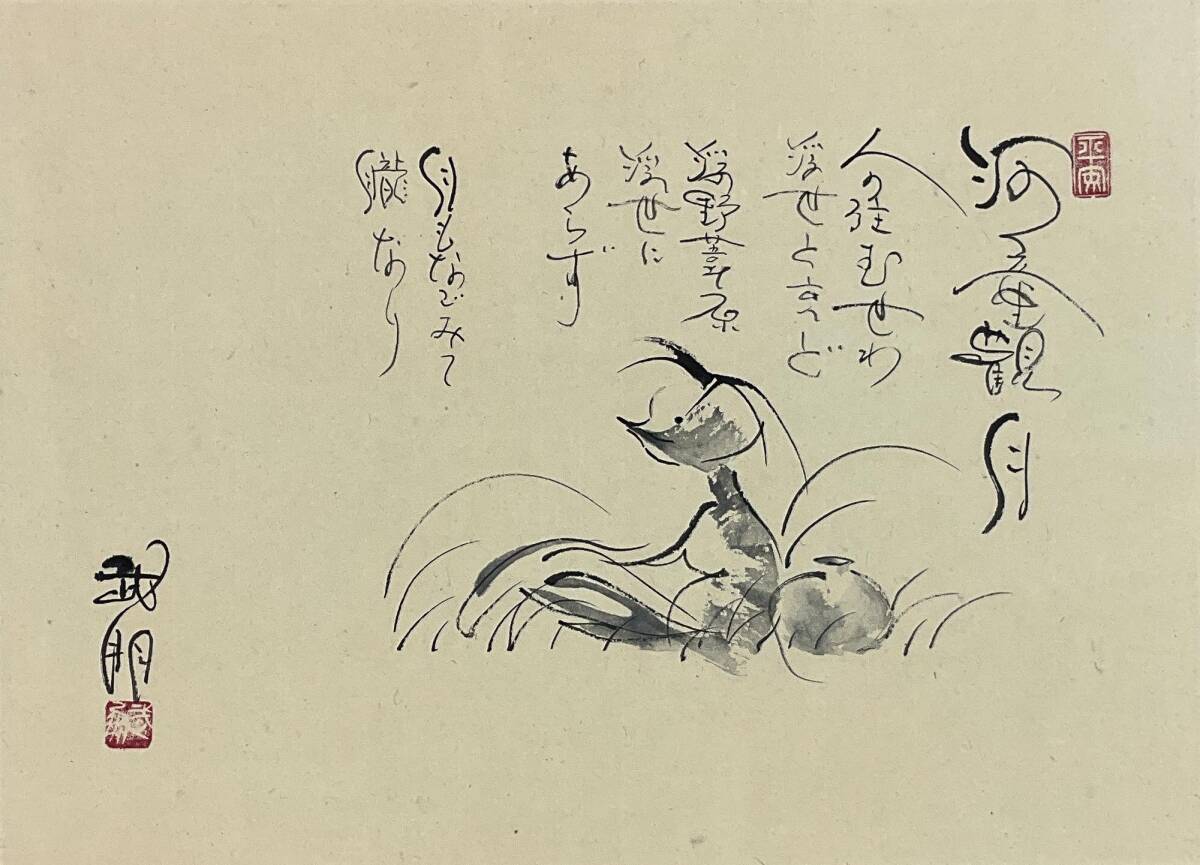 河童觀月
人の むせわ
浮世と言へど
浮野葦原
浮世に
あらず
月もなごみて
朧なり
武朋